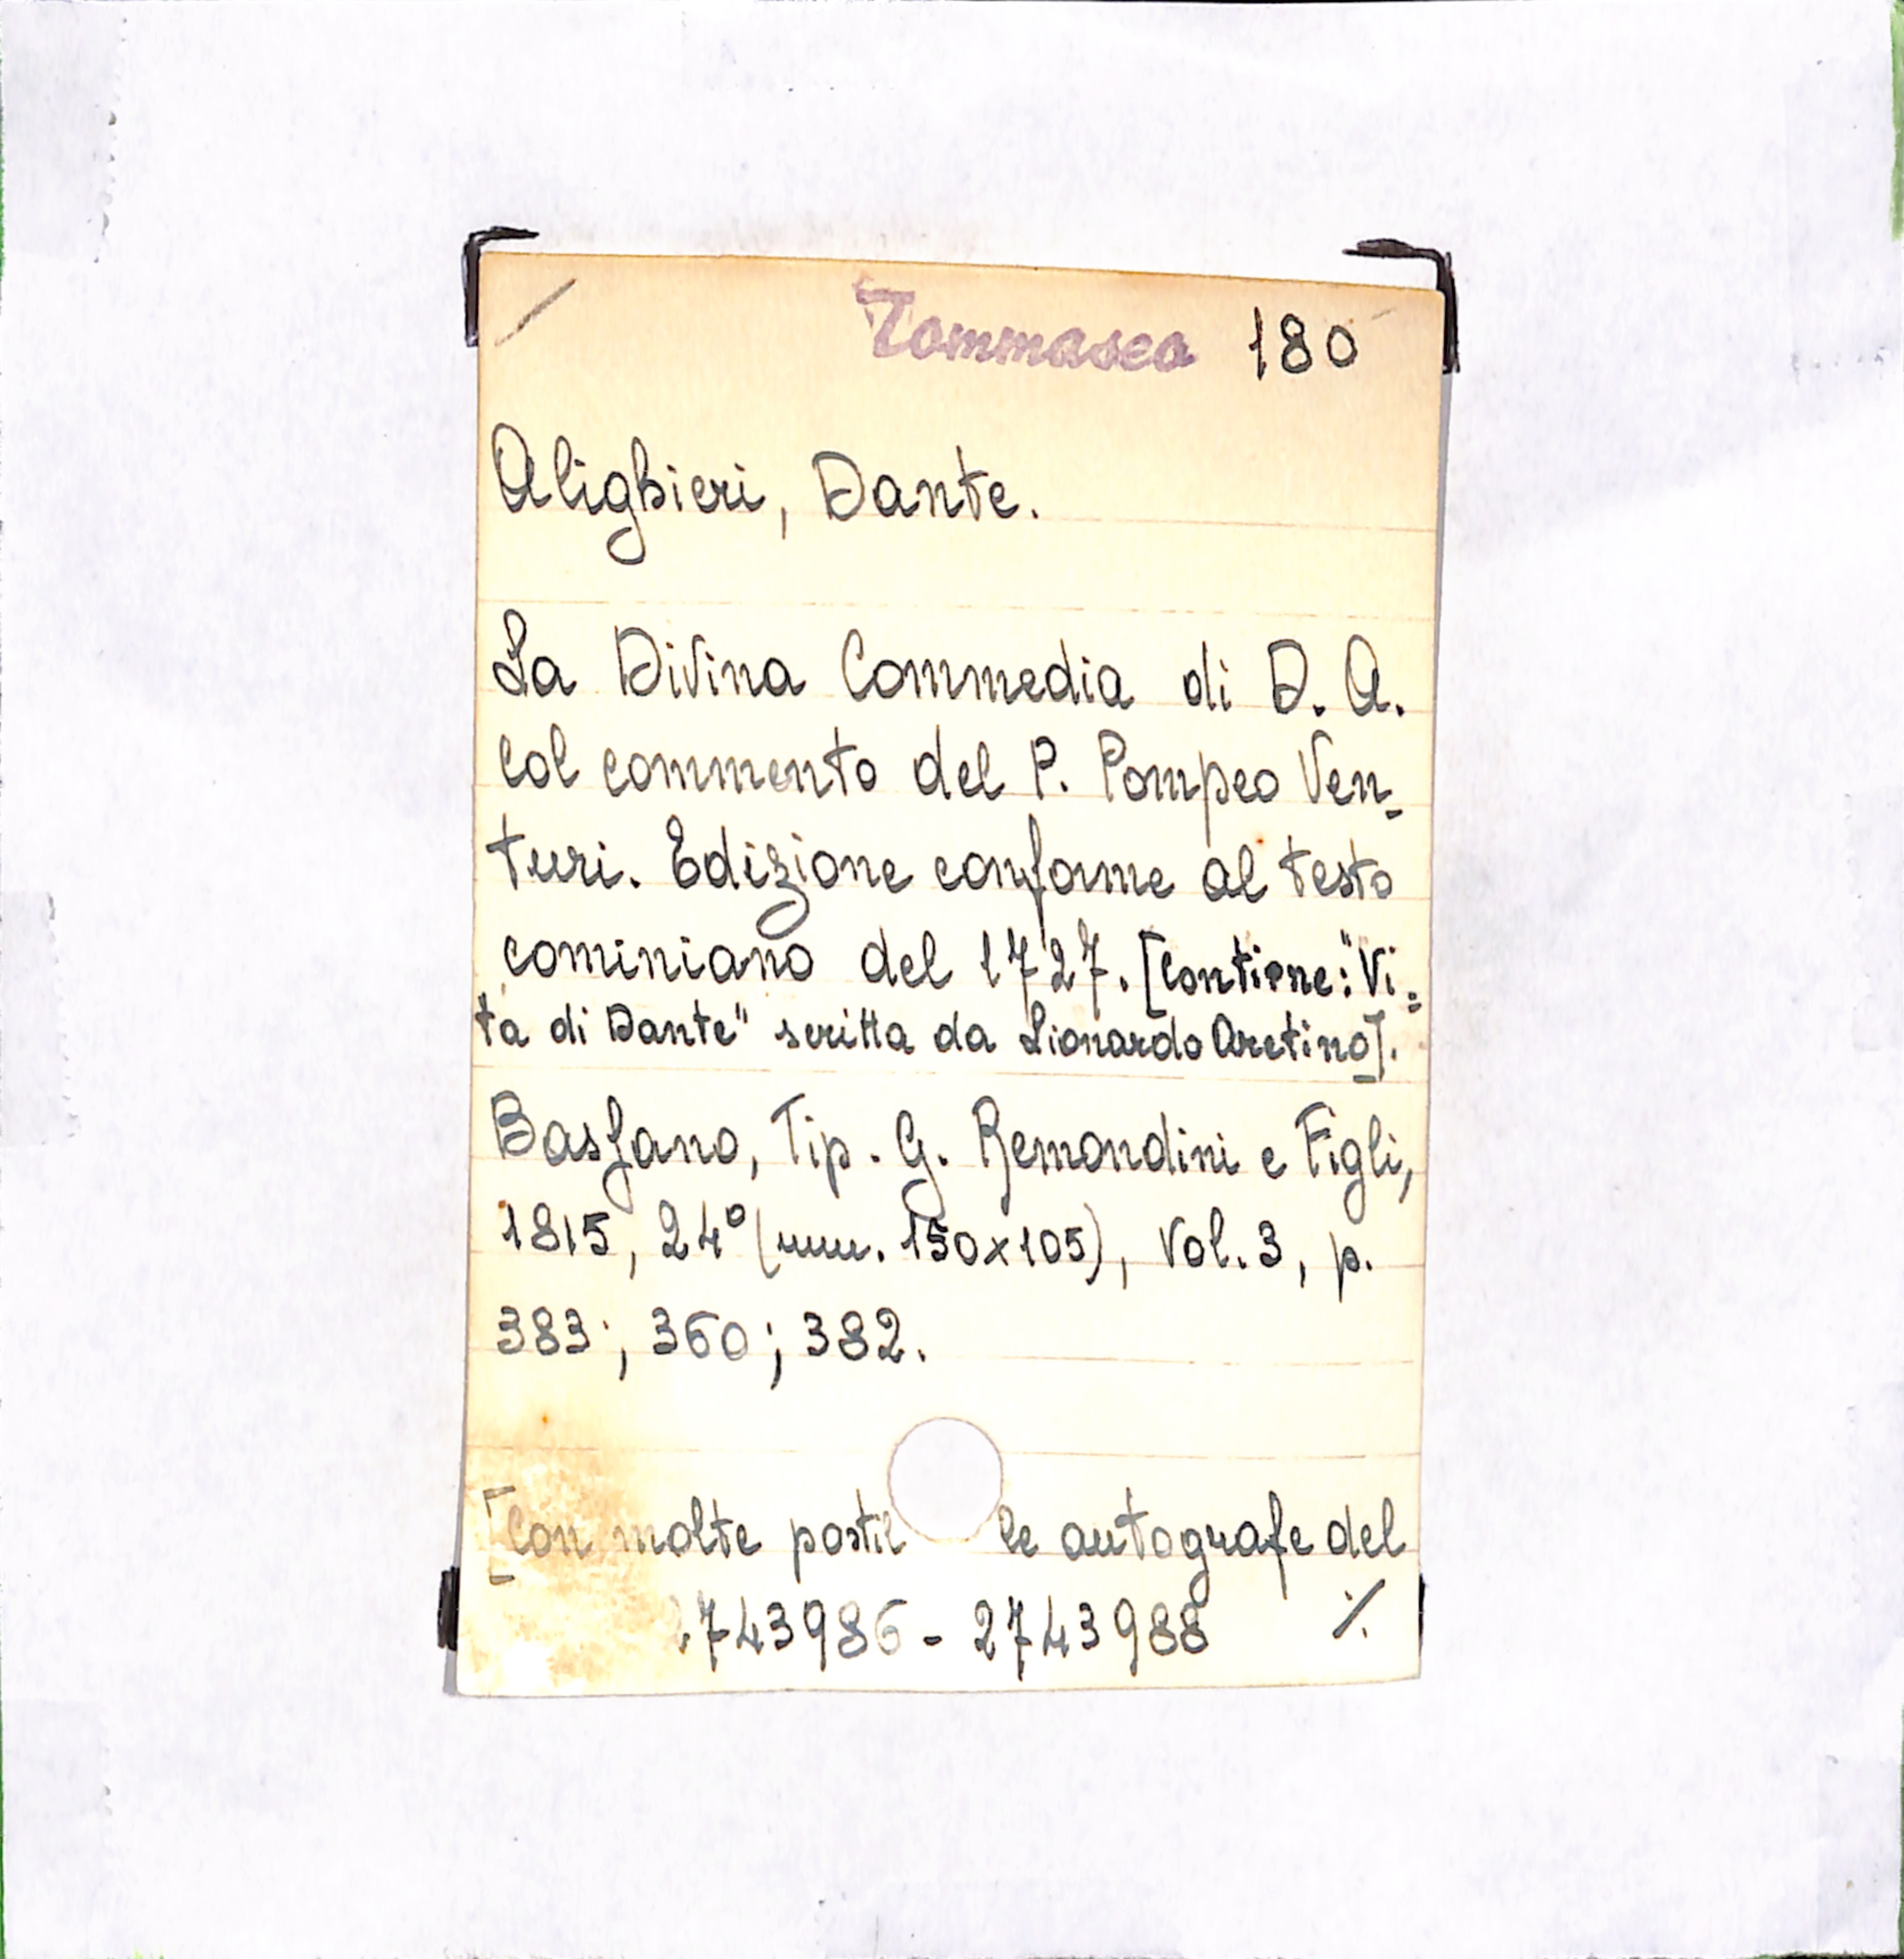 Tommaseo 180
Alighieri, Dante.
La Divina Commedia di D. A.
col commento del P. Pompeo Ven-
turi. Edizione conforme al testo
cominiano del 1727. [Contiene: "Vi=
ta di Dante" scritta da Lionardo Aretino].
Bassano, Tip. G. Remondini e Figli,
1815, 24° (mm. 150x105), Vol. 3, p.
383; 360; 382.
[Con molte postille autografe del
2743986 - 2743988 ./.